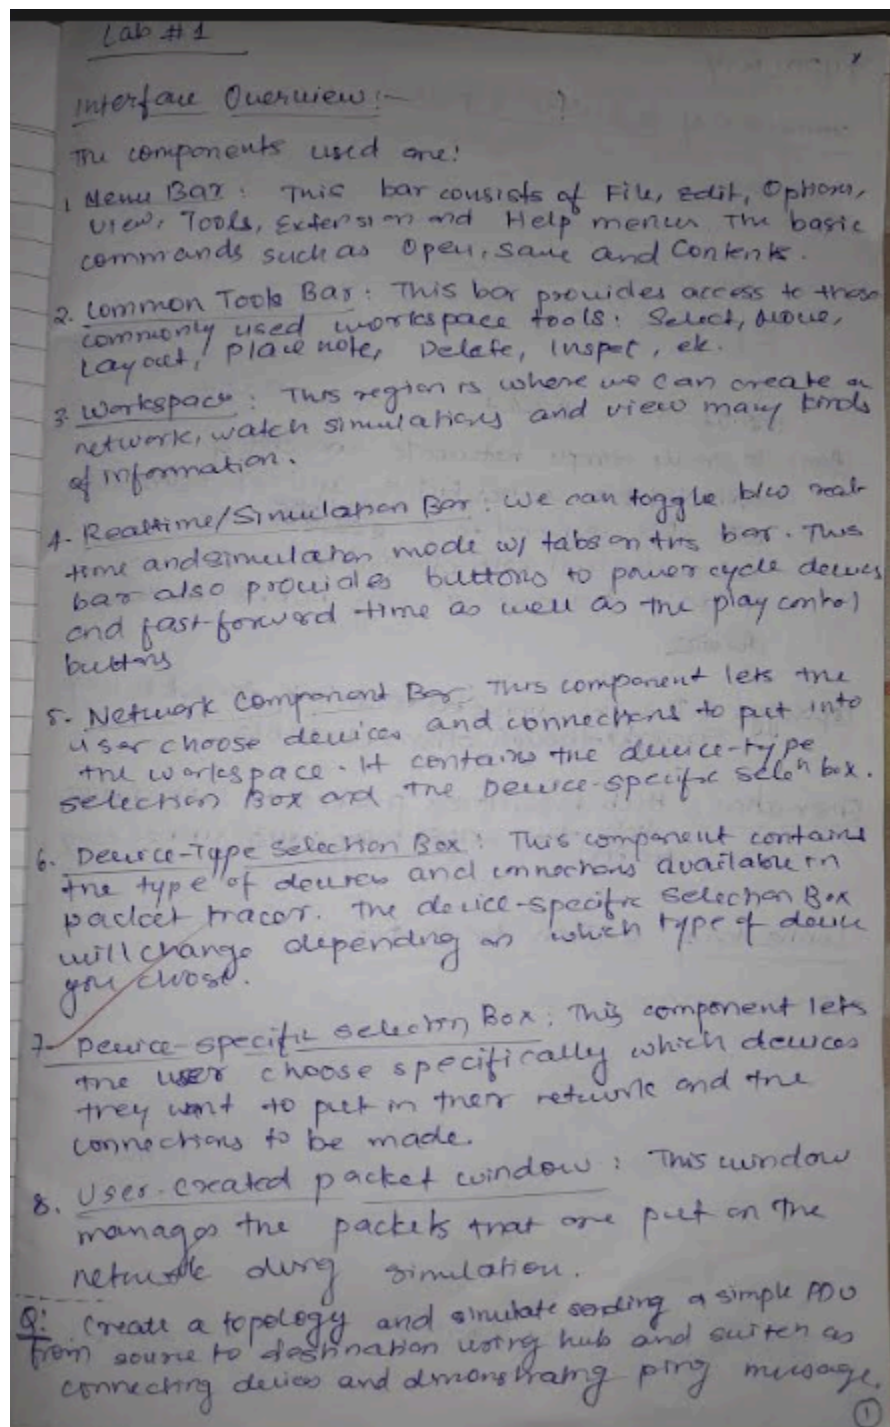 Lab #1
Interface Overview:-
The components used are:
1. Menu Bar: This bar consists of File, Edit, Options,
View, Tools, Extension and Help menus The basic
commands such as Open, Save and Contents.
2. Common Tools Bar: This bar provides access to those
commonly used workspace tools: Select, Move,
Layout, Place note, Delete, Inspect, etc.
3. Workspace: This region is where we can create a
network, watch simulations and view many kinds
of information.
4. Realtime/Simulation Bar: We can toggle b/w real
time and simulation mode w/ tabs on this bar. This
bar also provides buttons to power cycle devices
and fast-forward time as well as the play control
buttons
5. Network Component Bar: This component lets the
user choose devices and connections to put into
the workspace. It contains the device-type
selection Box and the Device-specific selen box.
6. Device-Type Selection Box: This component contains
the type of devices and connections available in
packet tracer. The device-specific Selection Box
will change depending on which type of device
you chose.
7. Device-specific selection Box: This component lets
the user choose specifically which devices
they want to put in their network and the
connections to be made.
8. User-Created packet window: This window
manages the packets that are put on the
network during simulation.
Q: Create a topology and simulate sending a simple PDU
from source to destination using hub and switch as
connecting devices and demonstrating ping message.
1